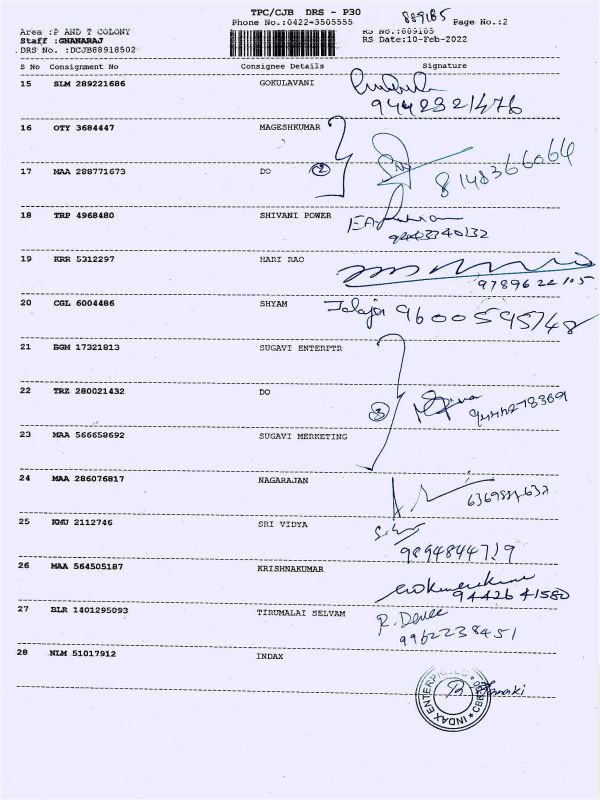 TPC/CJB DRS - P30
889185
Phone No.:0422-3505555
Page No.:2
Area :P AND T COLONY
RS No.:889185
Staff :GNANARAJ
RS Date:10-Feb-2022
DRS No. :DCJB88918502
S No Consignment No Consignee Details Signature
15 SLM 289221686 GOKULAVANI
9442321476
16 OTY 3684447 MAGESHKUMAR
17 MAA 288771673 DO 2
8148366064
18 TRP 4968480 SHIVANI POWER
19 KRR 5312297 HARI RAO
9789622105
20 CGL 6004486 SHYAM
9600595748
21 BGM 17321813 SUGAVI ENTERPTR
22 TRZ 280021432 DO
3
23 MAA 566658692 SUGAVI MERKETING
24 MAA 286076817 NAGARAJAN
25 KHU 2112746 SRI VIDYA
9894844719
26 MAA 564505187 KRISHNAKUMAR
9442641580
27 BLR 1401295093 TIRUMALAI SELVAM
9962238451
28 NLM 51017912 INDAX
INDAX ENTERPRISES